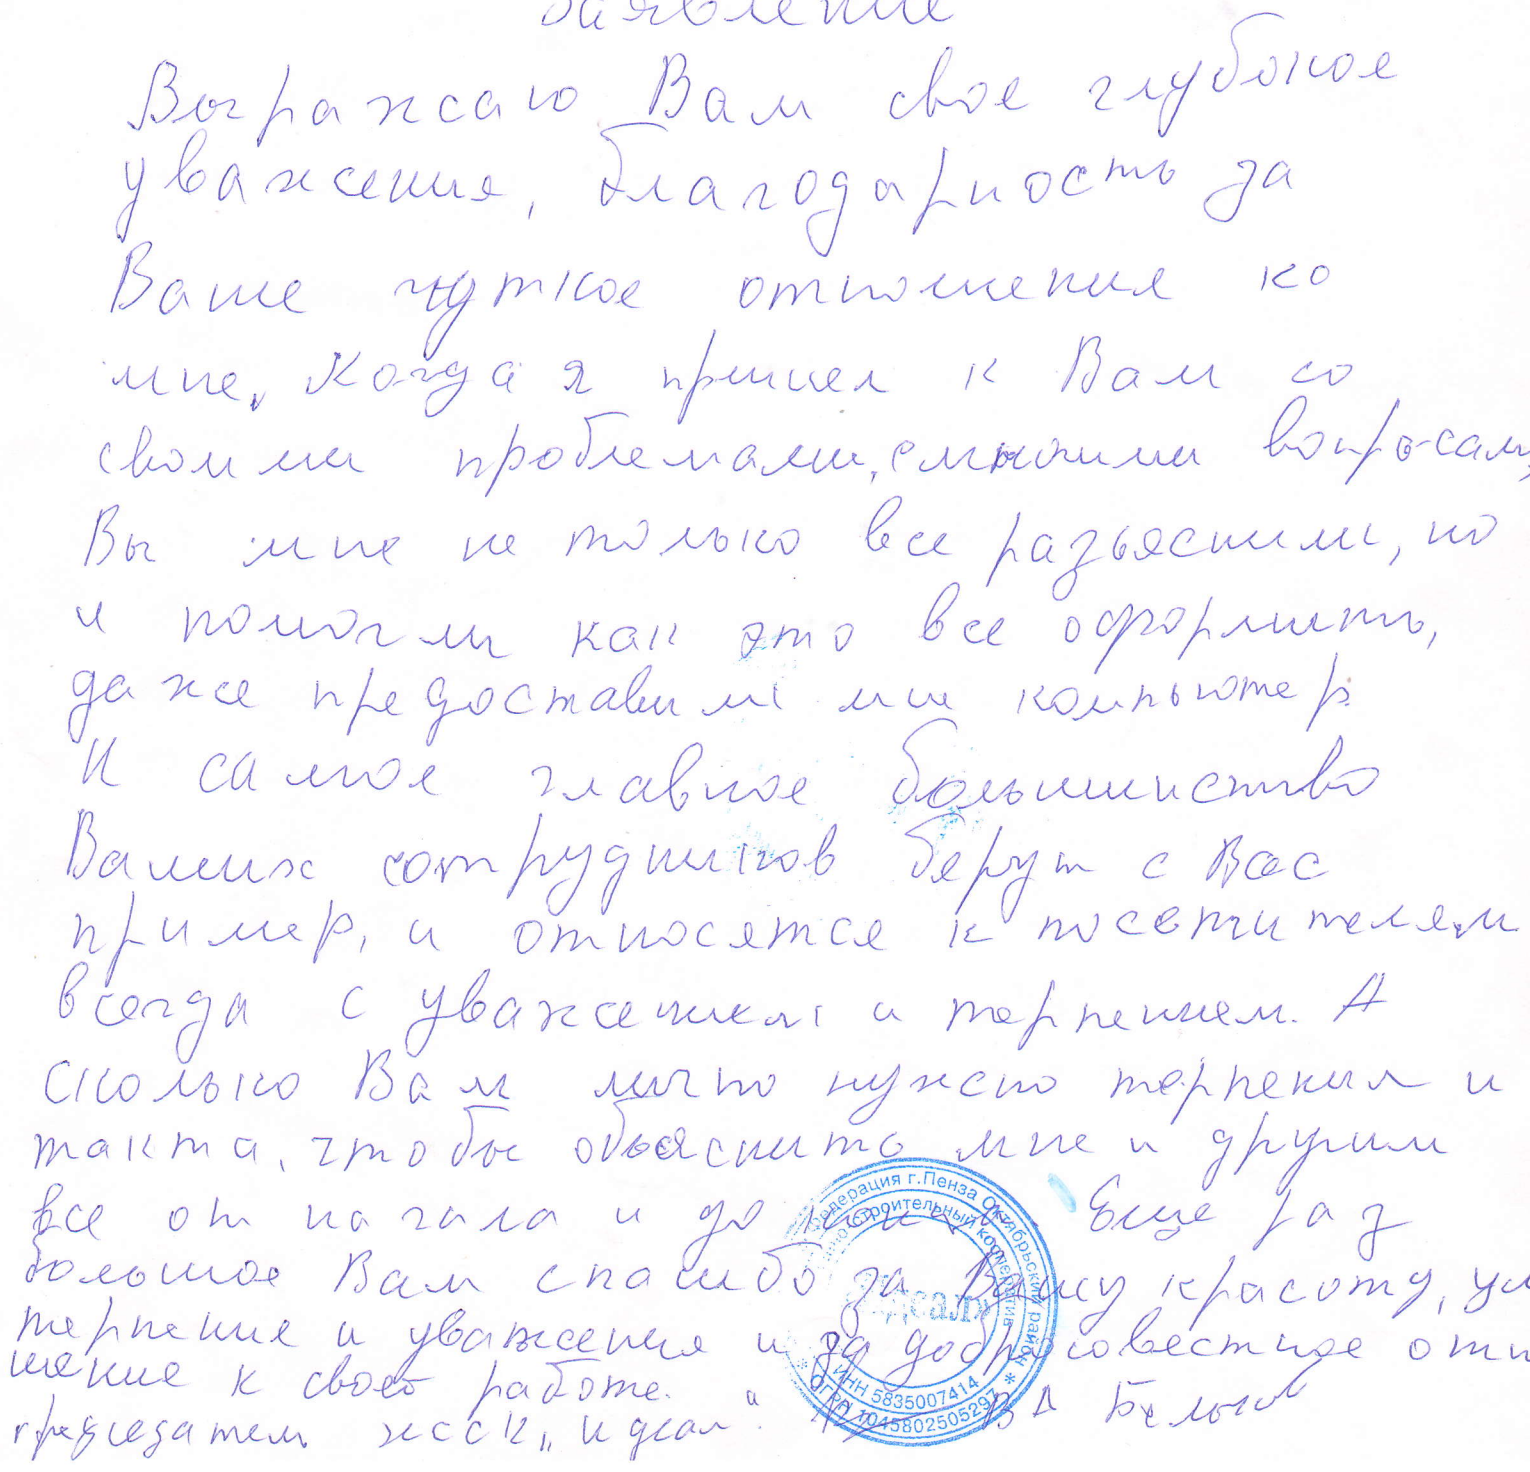 Заявление
Выражаю Вам свое глубокое
уважение, благодарность за
Ваше чуткое отношение ко
мне. Когда я пришел к Вам со
своими проблемами, с многими вопросами,
Вы мне не только все разьяснили, но
и помогли как это все оформить,
даже предоставили мне компьютер.
И самое главное большинство
Ваших сотрудников берут с Вас
пример, и относятся к посетителям
всегда с уважением и терпением. А
сколько Вам лично нужно терпения и
такта, чтобы обьяснить мне и другим
все от начала и до конца. Еще раз
большое Вам спасибо за Вашу красоту, ум
терпение и уважения и за добросовестное отно
шение к своей работе.
председатель жсск „Идеал“. ВА Белый
Федерация г.Пенза Октябрьский район
строительный кооператив
Идеал»
ИНН 5835007414
* ОГРН 1045802505297 *